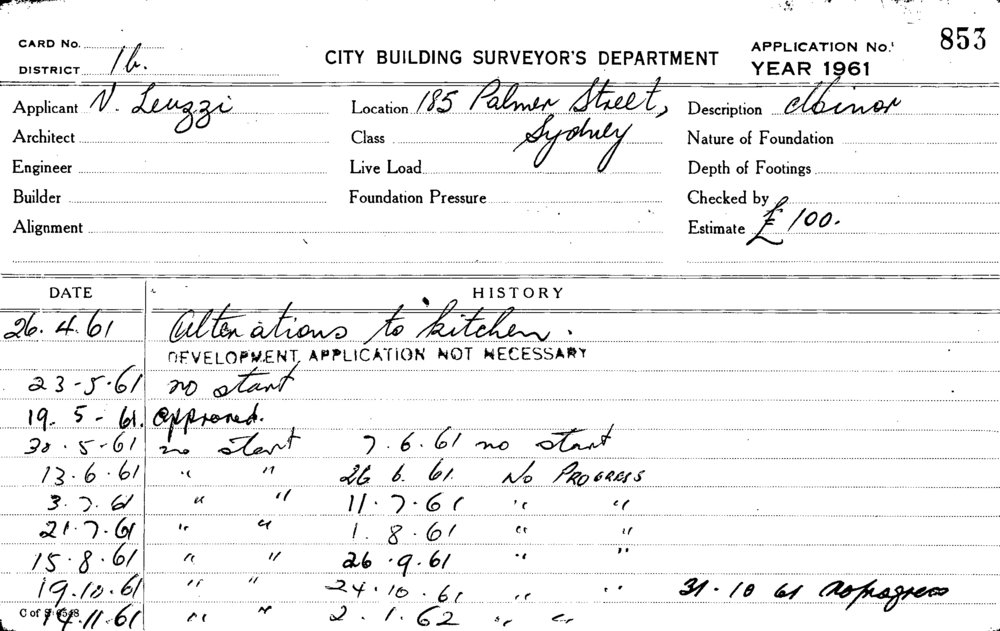 CARD No. CITY BUILDING SURVEYOR'S DEPARTMENT APPLICATION No. 853
DISTRICT 1b. YEAR 1961
Applicant V. Leuzzi Location 185 Palmer Street, Description Minor
Architect Class Sydney Nature of Foundation
Engineer Live Load Depth of Footings
Builder Foundation Pressure Checked by
Alignment Estimate £100.
DATE HISTORY
26.4.61 Alterations to kitchen.
DEVELOPMENT APPLICATION NOT NECESSARY
23-5-61 no start
19.5-61. approved.
30.5-61 no start 7.6.61 no start
13.6.61 " " 26 6.61. No PROGRESS
3.7.61 " " 11.7.61 " "
21.7.61 " " 1.8.61 " "
15.8.61 " " 26.9.61 " "
19.10.61 " " 24.10.61 " " 31.10 61 no progress
C of S 14.11.61 " " 2.1.62 " "